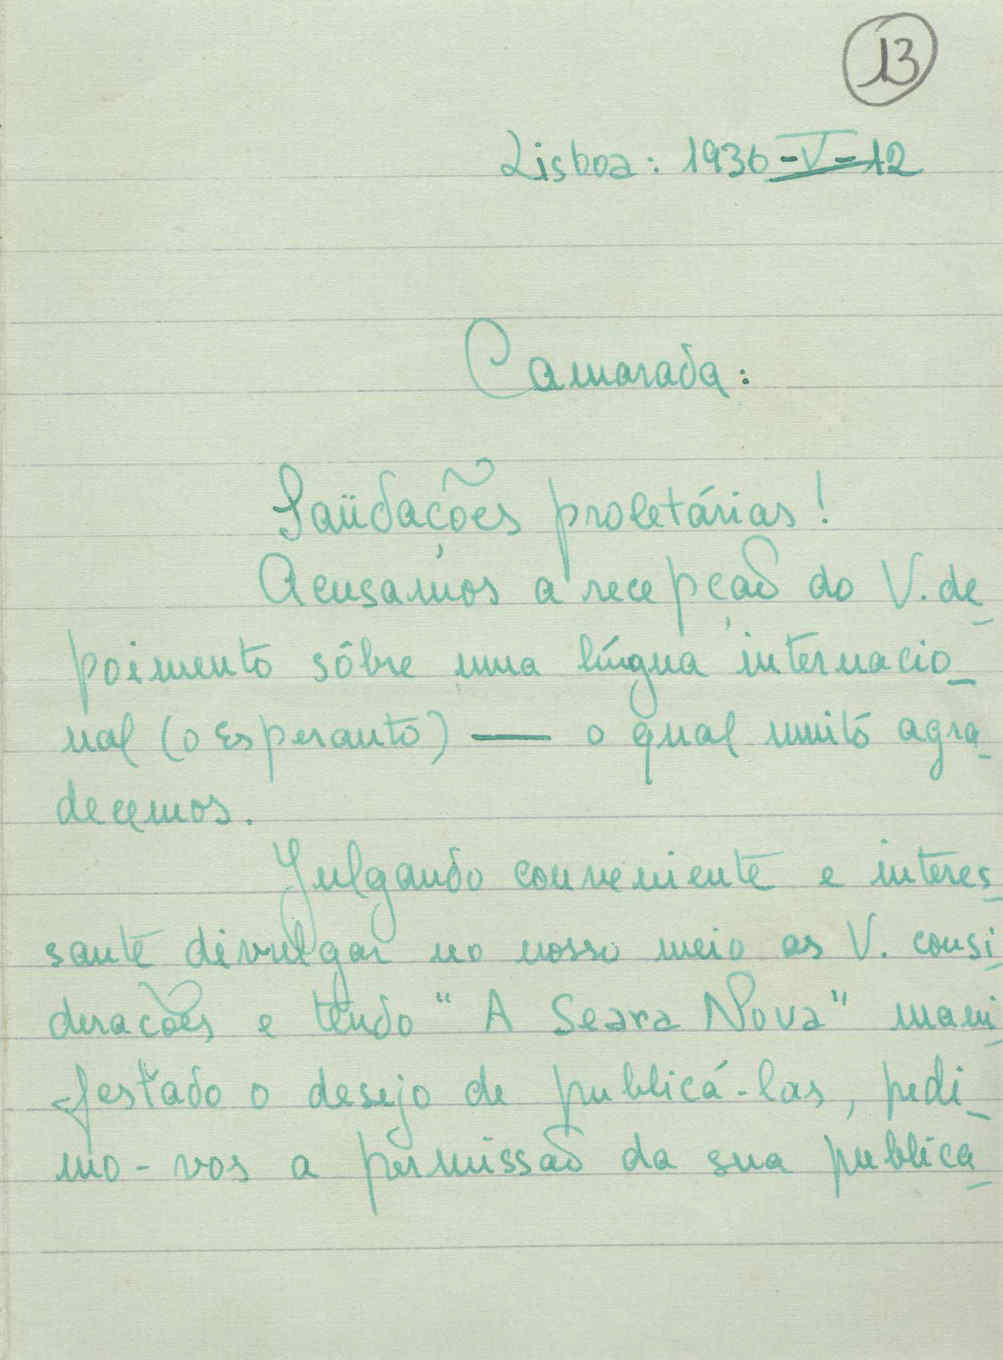 13
Lisboa: 1936-V-12
Camarada:
Saüdações proletárias!
Acusamos a recepção do V. de_
poimento sôbre uma língua internacio_
nal (o Esperanto) — o qual muito agra_
decemos.
Julgando conveniente e interes_
sante divulgar no nosso meio as V. consi_
derações e tendo "A Seara Nova" mani_
festado o desejo de publicá-las, pedi_
mo-vos a permissão da sua publica_